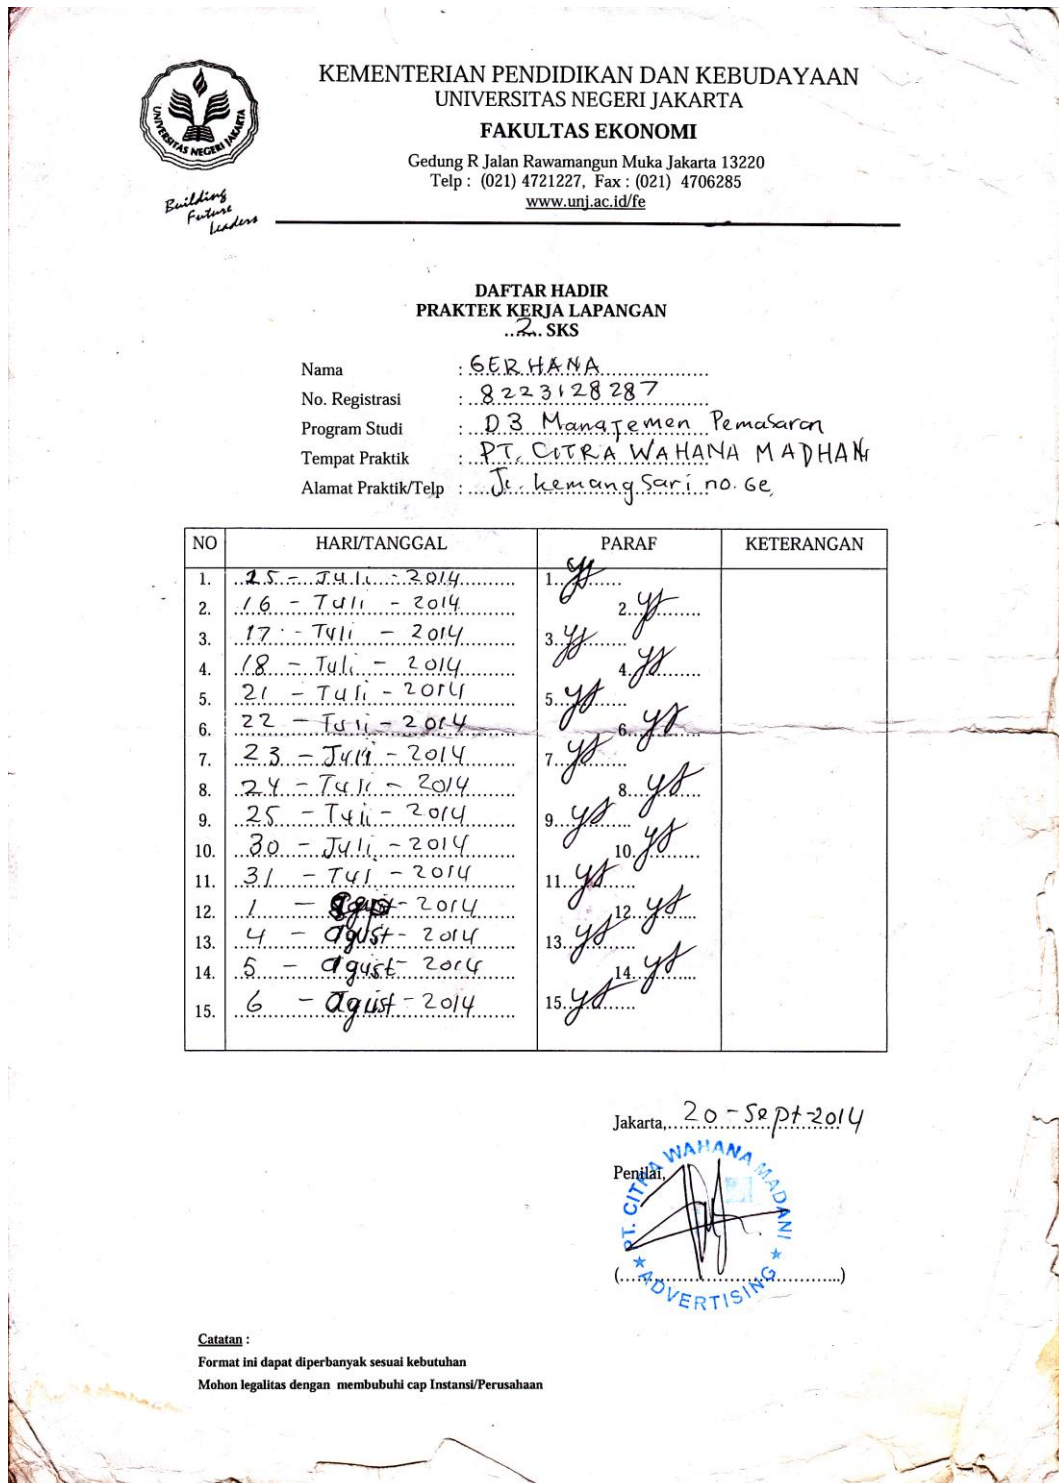 KEMENTERIAN PENDIDIKAN DAN KEBUDAYAAN
UNIVERSITAS NEGERI JAKARTA
FAKULTAS EKONOMI
Gedung R Jalan Rawamangun Muka Jakarta 13220
Telp : (021) 4721227, Fax : (021) 4706285
www.unj.ac.id/fe
UNIVERSITAS NEGERI JAKARTA
Building
Future
Leaders
DAFTAR HADIR
PRAKTEK KERJA LAPANGAN
..2.. SKS
Nama : GERHANA
No. Registrasi : 8223128287
Program Studi : D3 Manajemen Pemasaran
Tempat Praktik : PT. CITRA WAHANA MADHANI
Alamat Praktik/Telp : Jl. Kemang Sari no. 6e
NO HARI/TANGGAL PARAF KETERANGAN
1. 15 - Juli - 2014 1.
2. 16 - Juli - 2014 2.
3. 17 - Juli - 2014 3.
4. 18 - Juli - 2014 4.
5. 21 - Juli - 2014 5.
6. 22 - Juli - 2014 6.
7. 23 - Juli - 2014 7.
8. 24 - Juli - 2014 8.
9. 25 - Juli - 2014 9.
10. 30 - Juli - 2014 10.
11. 31 - Jul - 2014 11.
12. 1 - - 2014 12.
13. 4 - agust - 2014 13.
14. 5 - agust - 2014 14.
15. 6 - agust - 2014 15.
Jakarta, 20 - Sept - 2014
Penilai,
PT. CITRA WAHANA MADANI
★ ADVERTISING ★
(..........................................)
Catatan :
Format ini dapat diperbanyak sesuai kebutuhan
Mohon legalitas dengan membubuhi cap Instansi/Perusahaan